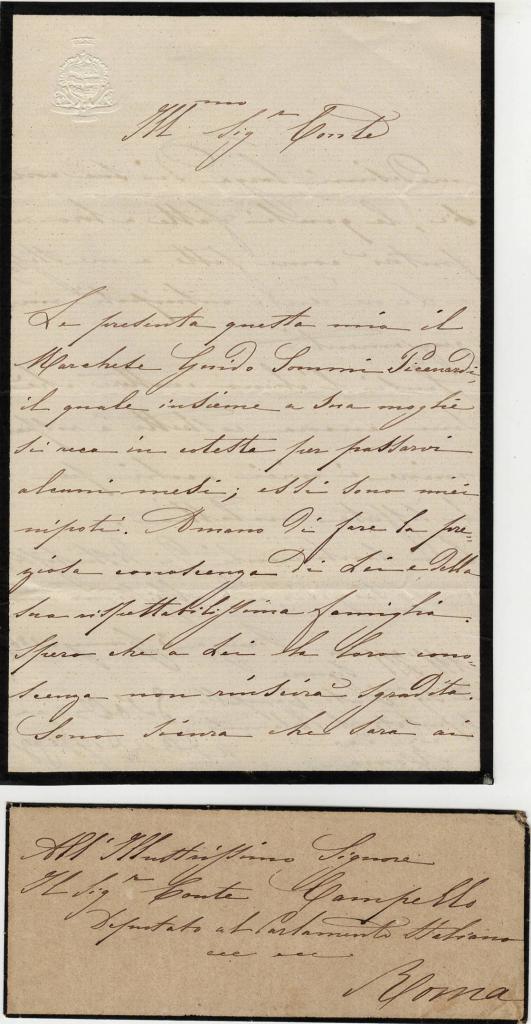 Ill.mo Sig.r Conte
Le presenta questa mia il
Marchese Guido Sommi Picenardi,
il quale insieme a sua moglie
si reca in cotesta per passarvi
alcuni mesi; essi sono miei
nipoti. Amano di fare la pre=
ziosa conoscenza di Lei e della
sua rispettabilissima famiglia.
Spero che a Lei la loro cono=
scenza non riuscirà sgradita.
Sono sicura che sarà ai
All'Illustrissimo Signore
Il Sig.r Conte Campello
Deputato al Parlamento Italiano
Roma